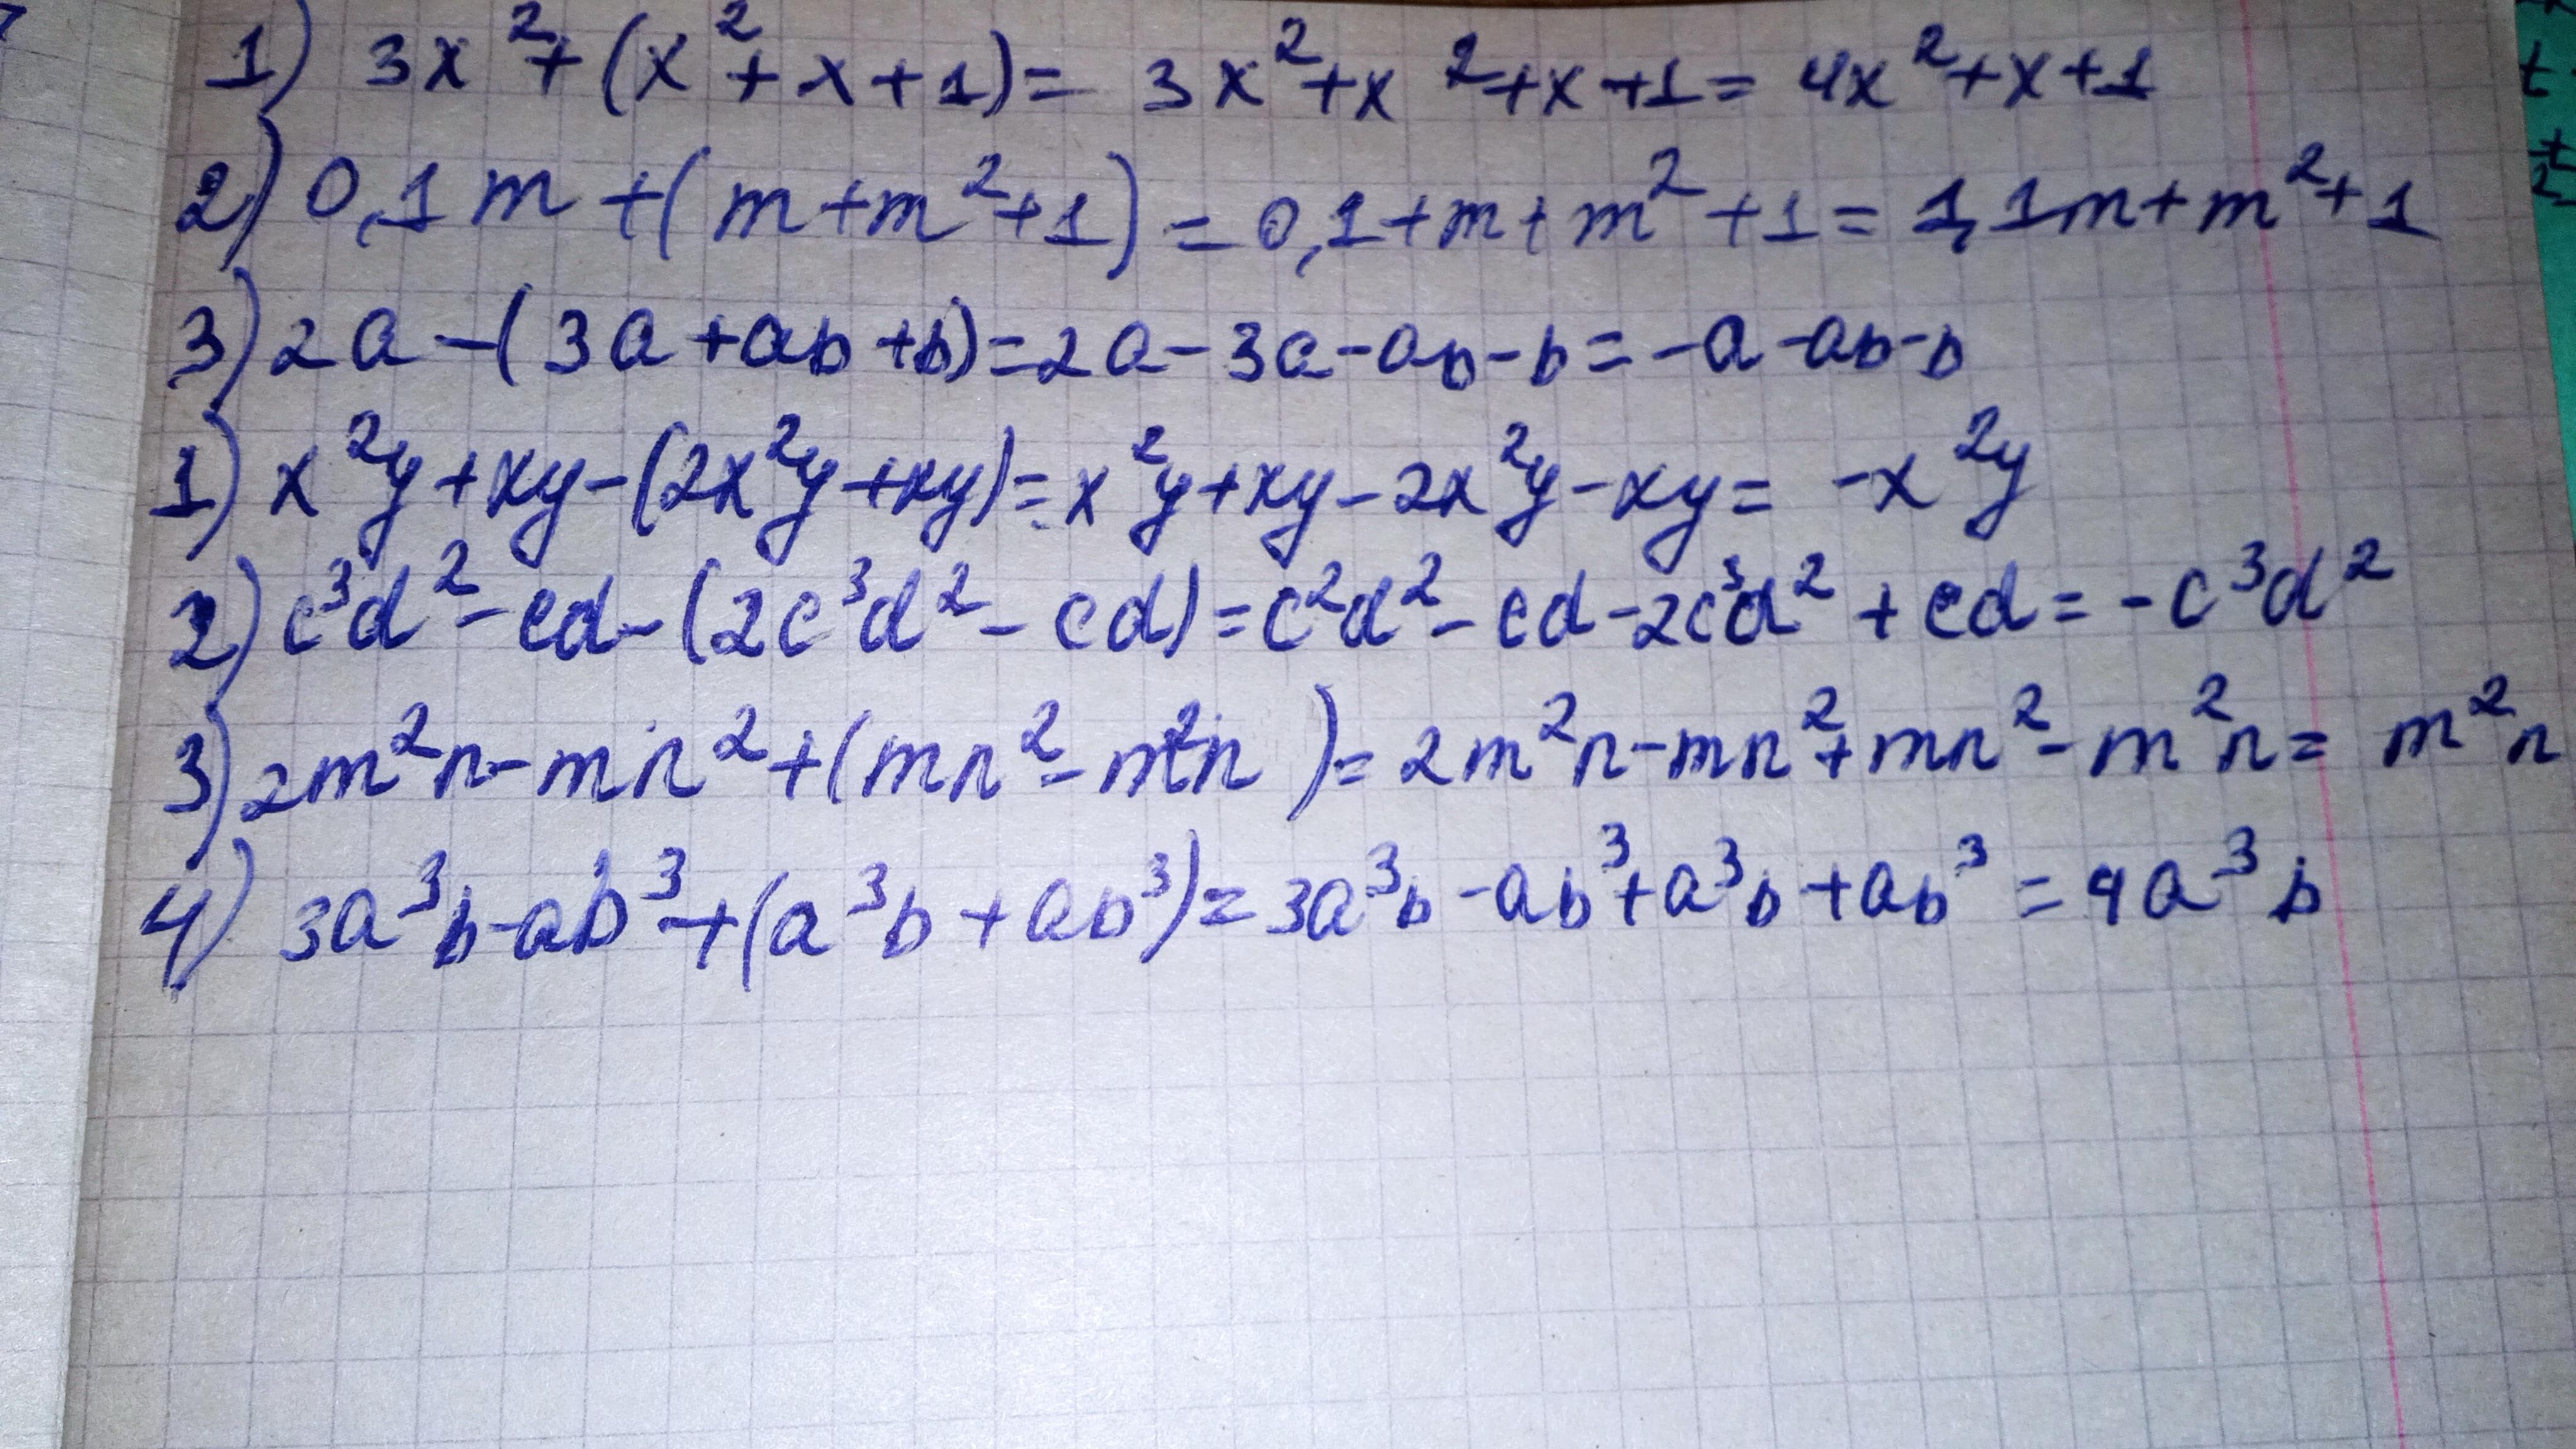 1) 3x²+(x²+x+1)= 3x²+x²+x+1= 4x²+x+1
2) 0,1m+(m+m²+1)=0,1+m+m²+1=1,1m+m²+1
3) 2a-(3a+ab+b)=2a-3a-ab-b=-a-ab-b
1) x²y+xy-(2x²y+xy)=x²y+xy-2x²y-xy= -x²y
2) c³d²-cd-(2c³d²-cd)=c²d²-cd-2c³d²+cd=-c³d²
3) 2m²n-mn²+(mn²-m²n)=2m²n-mn²+mn²-m²n= m²n
4) 3a³b-ab³+(a³b+ab³)=3a³b-ab³+a³b+ab³=4a³b